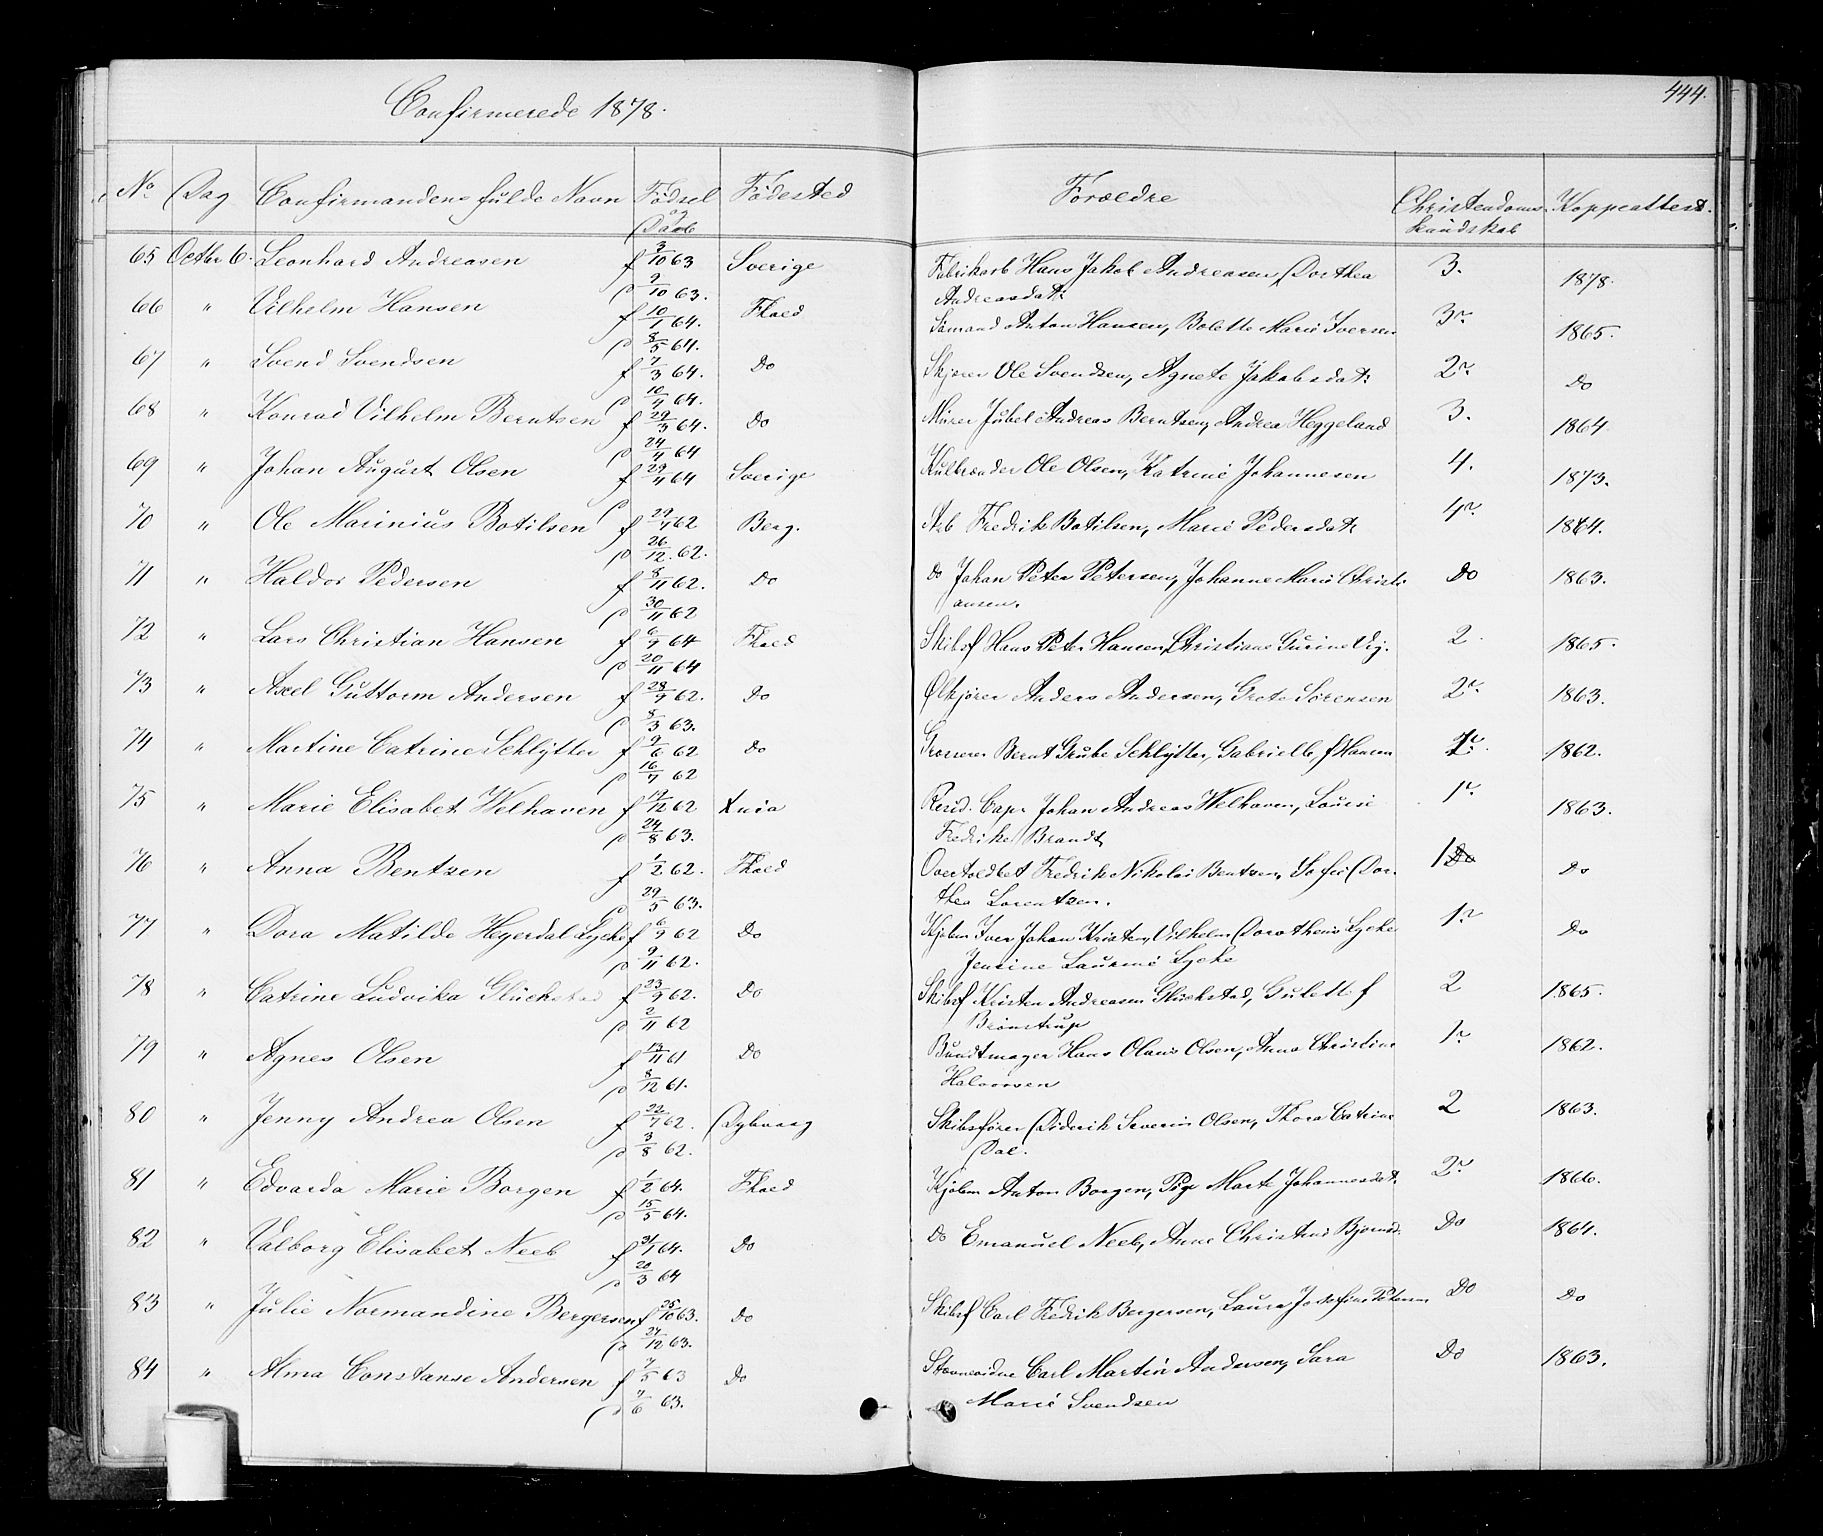 Confirmerede 1878.
444.
No Dag Confirmandens fulde Navn Fødsel og Daab Fødested Forældre Christendoms kundskab Koppeattest.
65 Octbr 6. Leonhard Andreasen f 3/10 63 Sverige Fabrikarb Hans Jakob Andreasen, Dorthea 3. 1878.
D 9/10 63. Andreasdat:
66 " Vilhelm Hansen f 10/1 64. Fhald Sømand Anton Hansen, Bolette Marie Iversen 3r 1865.
D 8/5 64.
67 " Svend Svendsen f 7/3 64. Do Skjører Ole Svendsen, Agnete Jakobsdat: 2r Do
D 10/4 64.
68 " Konrad Vilhelm Berntsen f 29/3 64. Do Murer Jubel Andreas Berntsen, Andrea Heggeland 3. 1864
D 24/4 64
69 " Johan August Olsen f 29/4 64 Sverige Kulbrænder Ole Olsen, Katrine Johannesen 4. 1873.
D
70 " Ole Marinius Botilsen f 29/4 62 Berg. Arb Fredrik Botilsen, Marie Pedersdat: 4r 1864.
D 26/12 62.
71 " Haldor Pedersen f 8/11 62. Do Do Johan Peter Petersen, Johanne Marie Christi Do 1863.
D 30/11 62 ansen.
72 " Lars Christian Hansen f 6/9 64 Fhald Skibsf Hans Peter Hansen, Christiane Gurine Vig. 2 1865.
D 20/11 64
73 " Axel Guttorm Andersen f 28/9 62. Do Ølkjører Anders Andersen, Grete Sørensen 2r 1863.
D 8/3 63.
74 " Martine Catrine Schlytter f 9/6 62 Do Grosserer Bernt Grube Schlytter, Gabrielle f Hansen 1r 1862.
D 16/7 62
75 " Marie Elisabet Welhaven f 14/12 62 Resid. Cap: Johan Andreas Welhaven, Louise 1r 1863.
D 24/8 63. Fredrike Brandt
76 " Anna Bentzen f 1/2 62. Fhald Overtoldbet Fredrik Nikolai Bentzen, Sofie Dor- 1 Do
D 29/5 63. thea Lorentzen.
77 " Dora Matilde Heyerdal Lycke f 6/9 62 Do Kjøbm Iver Johan Kristen Vilhelm Dorotheus Lycke 1r Do
D 9/11 62. Jensine Laurine Lycke
78 " Catrine Ludvika Glückstad f 23/9 62. Do Skibsf Kristen Andreasen Glückstad, Gulette f 2 1865.
D 2/11 62 Brønstrup
79 " Agnes Olsen f 13/11 61 Do Bundtmager Hans Olaus Olsen, Anna Christine 1r 1862.
D 8/12 61. Halvorsen
80 " Jenny Andrea Olsen f 22/7 62. Dybvaag Skibsfører Diderik Severin Olsen, Thora Catrine 2 1863.
D 3/8 62. Dal.
81 " Edvarda Marie Borgen f 1/2 64. Fhald Kjøbm Anton Borgen, Pige Marte Johannesdat. 2r 1866.
D 15/5 64.
82 " Valborg Elisabet Neeb f 31/1 64. Do Do Emanuel Neeb, Anne Christine Bjørnsd. Do 1864.
D 20/3 64
83 " Julie Normandine Bergersen f 25/10 63. Do Skibsf Carl Fredrik Bergersen, Laura Josefine Petersen Do Do
D 27/12 63.
84 " Alma Constanse Andersen f 7/5 63 Do Carl Martin Andersen, Sara Do 1863.
D 7/6 63. Marie Svendsen